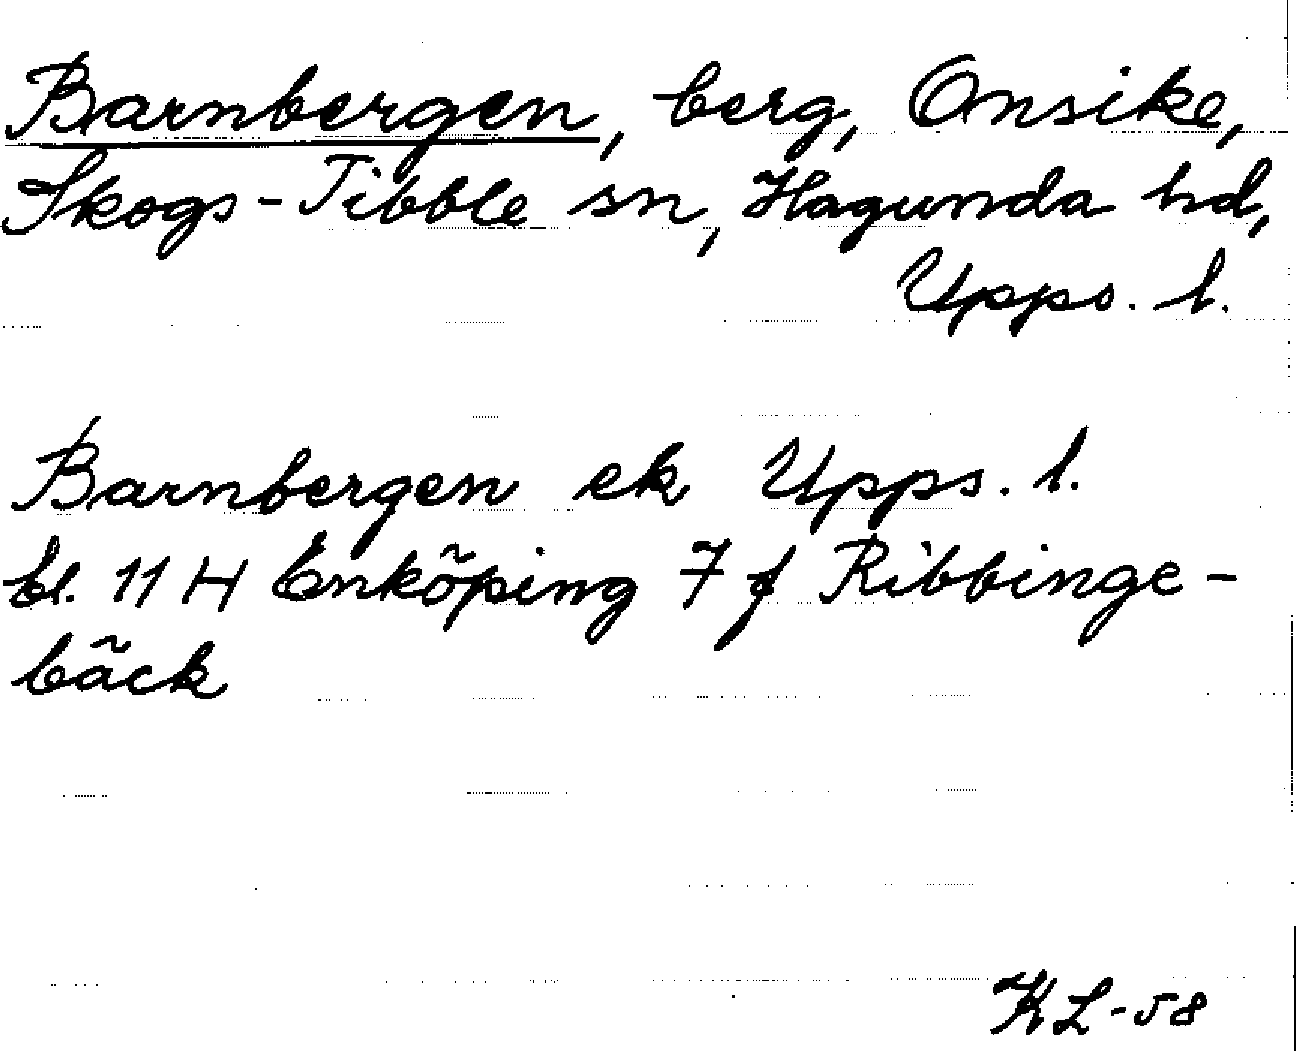 Barnbergen, berg, Onsike,
Skogs-Tibble sn, Hagunda hd,
Upps. l.
Barnbergen ek Upps. l.
bl. 11 H Enköping 7 f Ribbinge-
bäck
KL-58